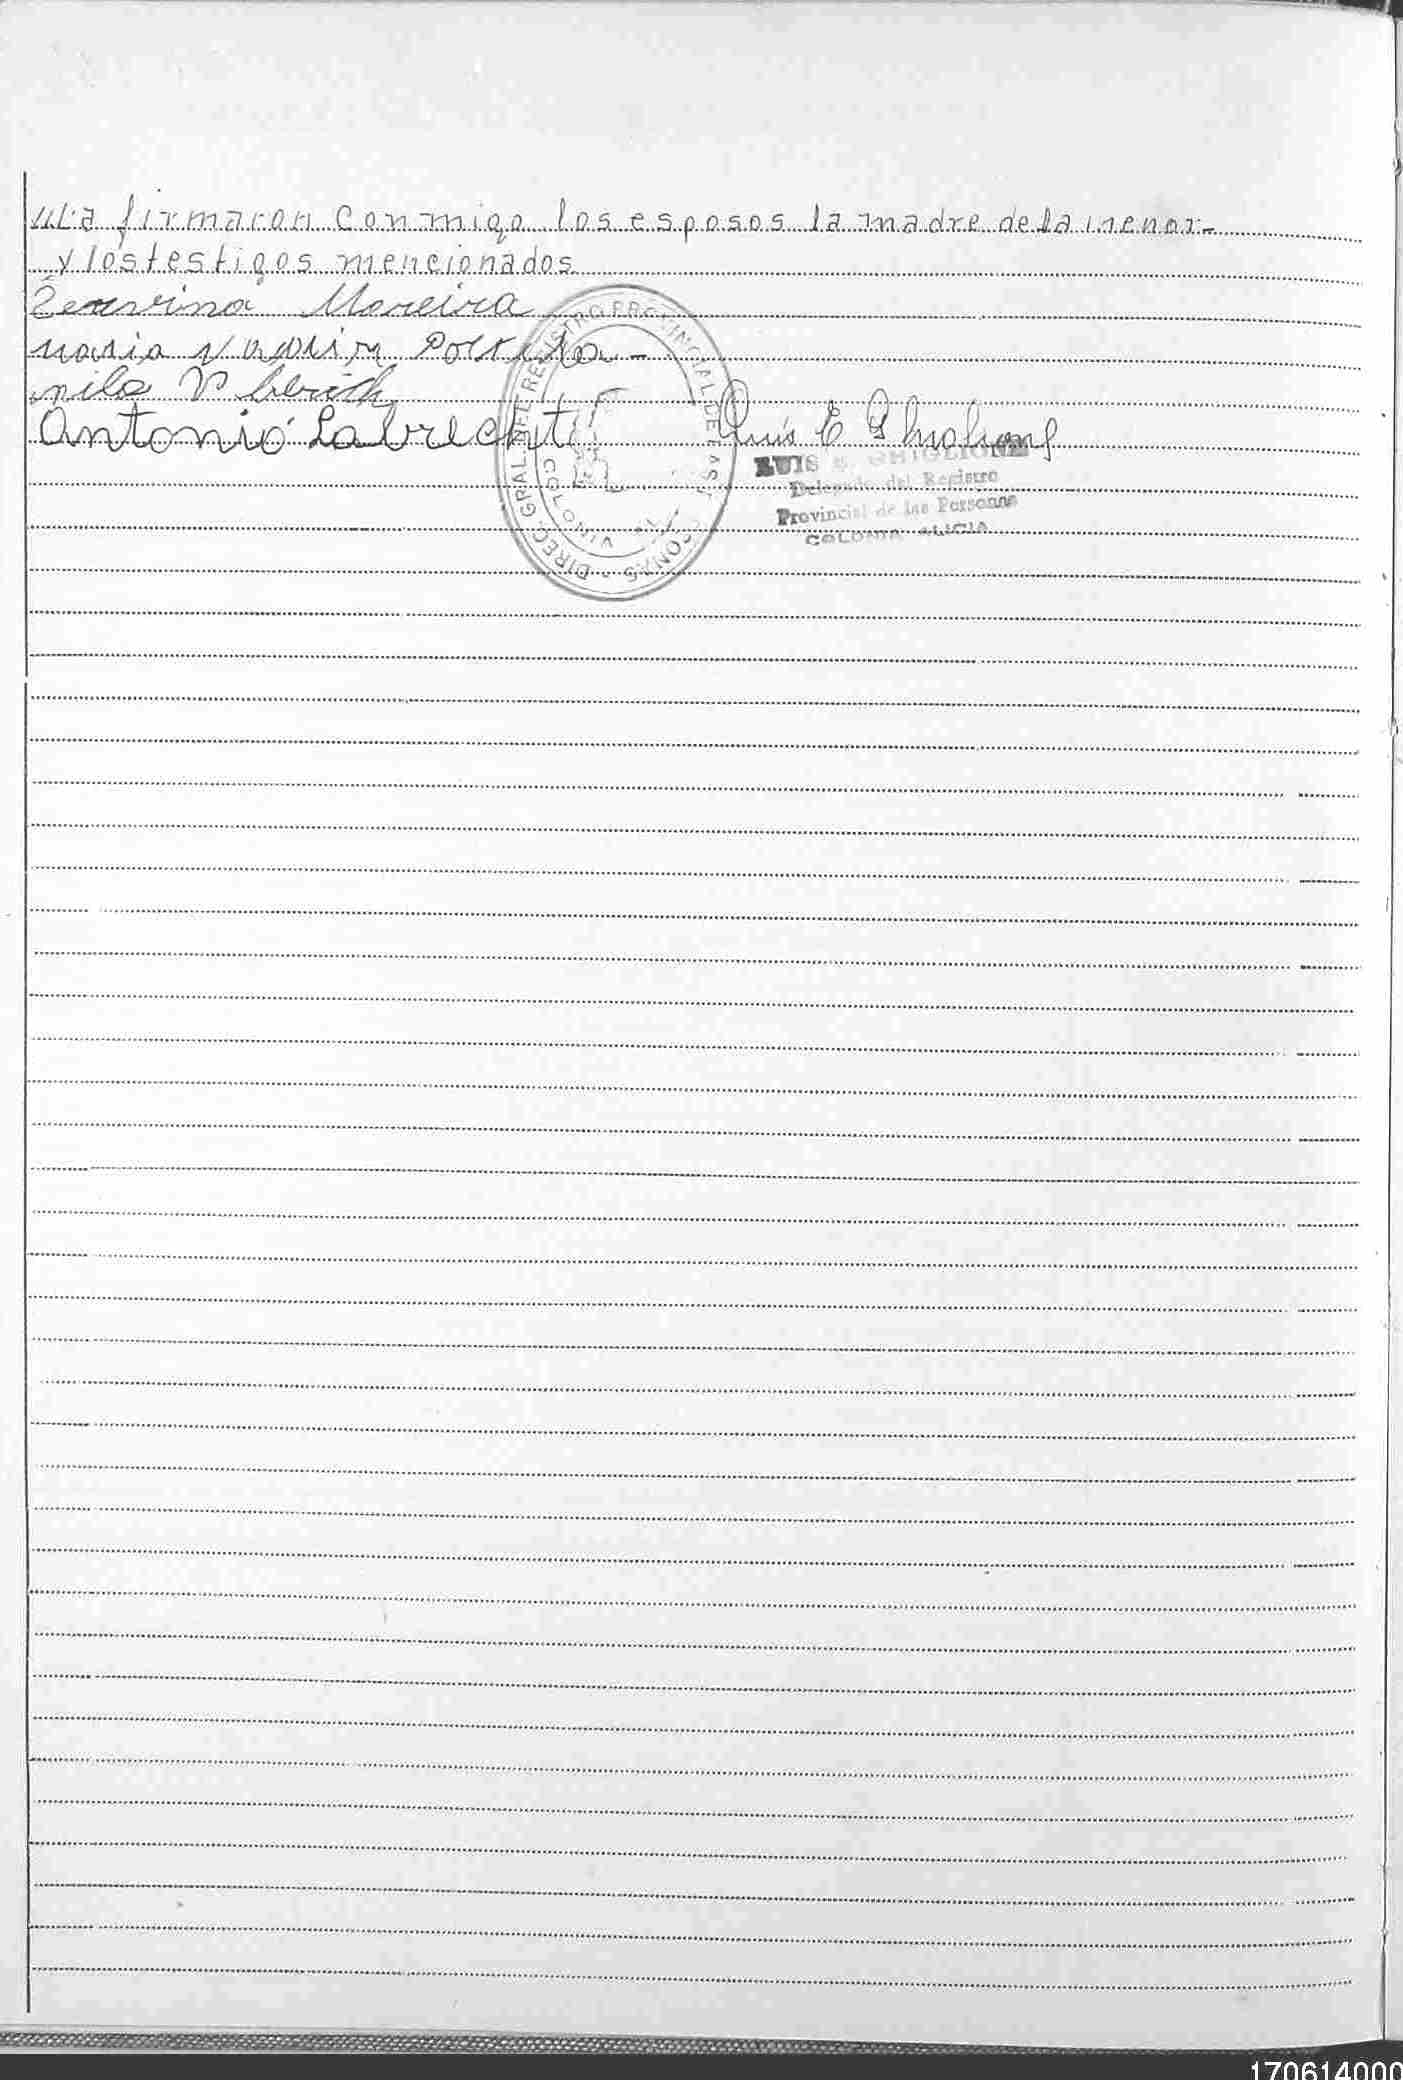 la firmaron conmigo los esposos la madre de la menor-
y los testigos mencionados
Moreira
Maria
Antonio Labrecht
Luis E Ghiglione
DIREC. GRAL. DEL REGISTRO PROVINCIAL DE LAS PERSONAS
COLONIA
LUIS E. GHIGLIONE
Delegado del Registro
Provincial de las Personas
COLONIA ALICIA
170614000